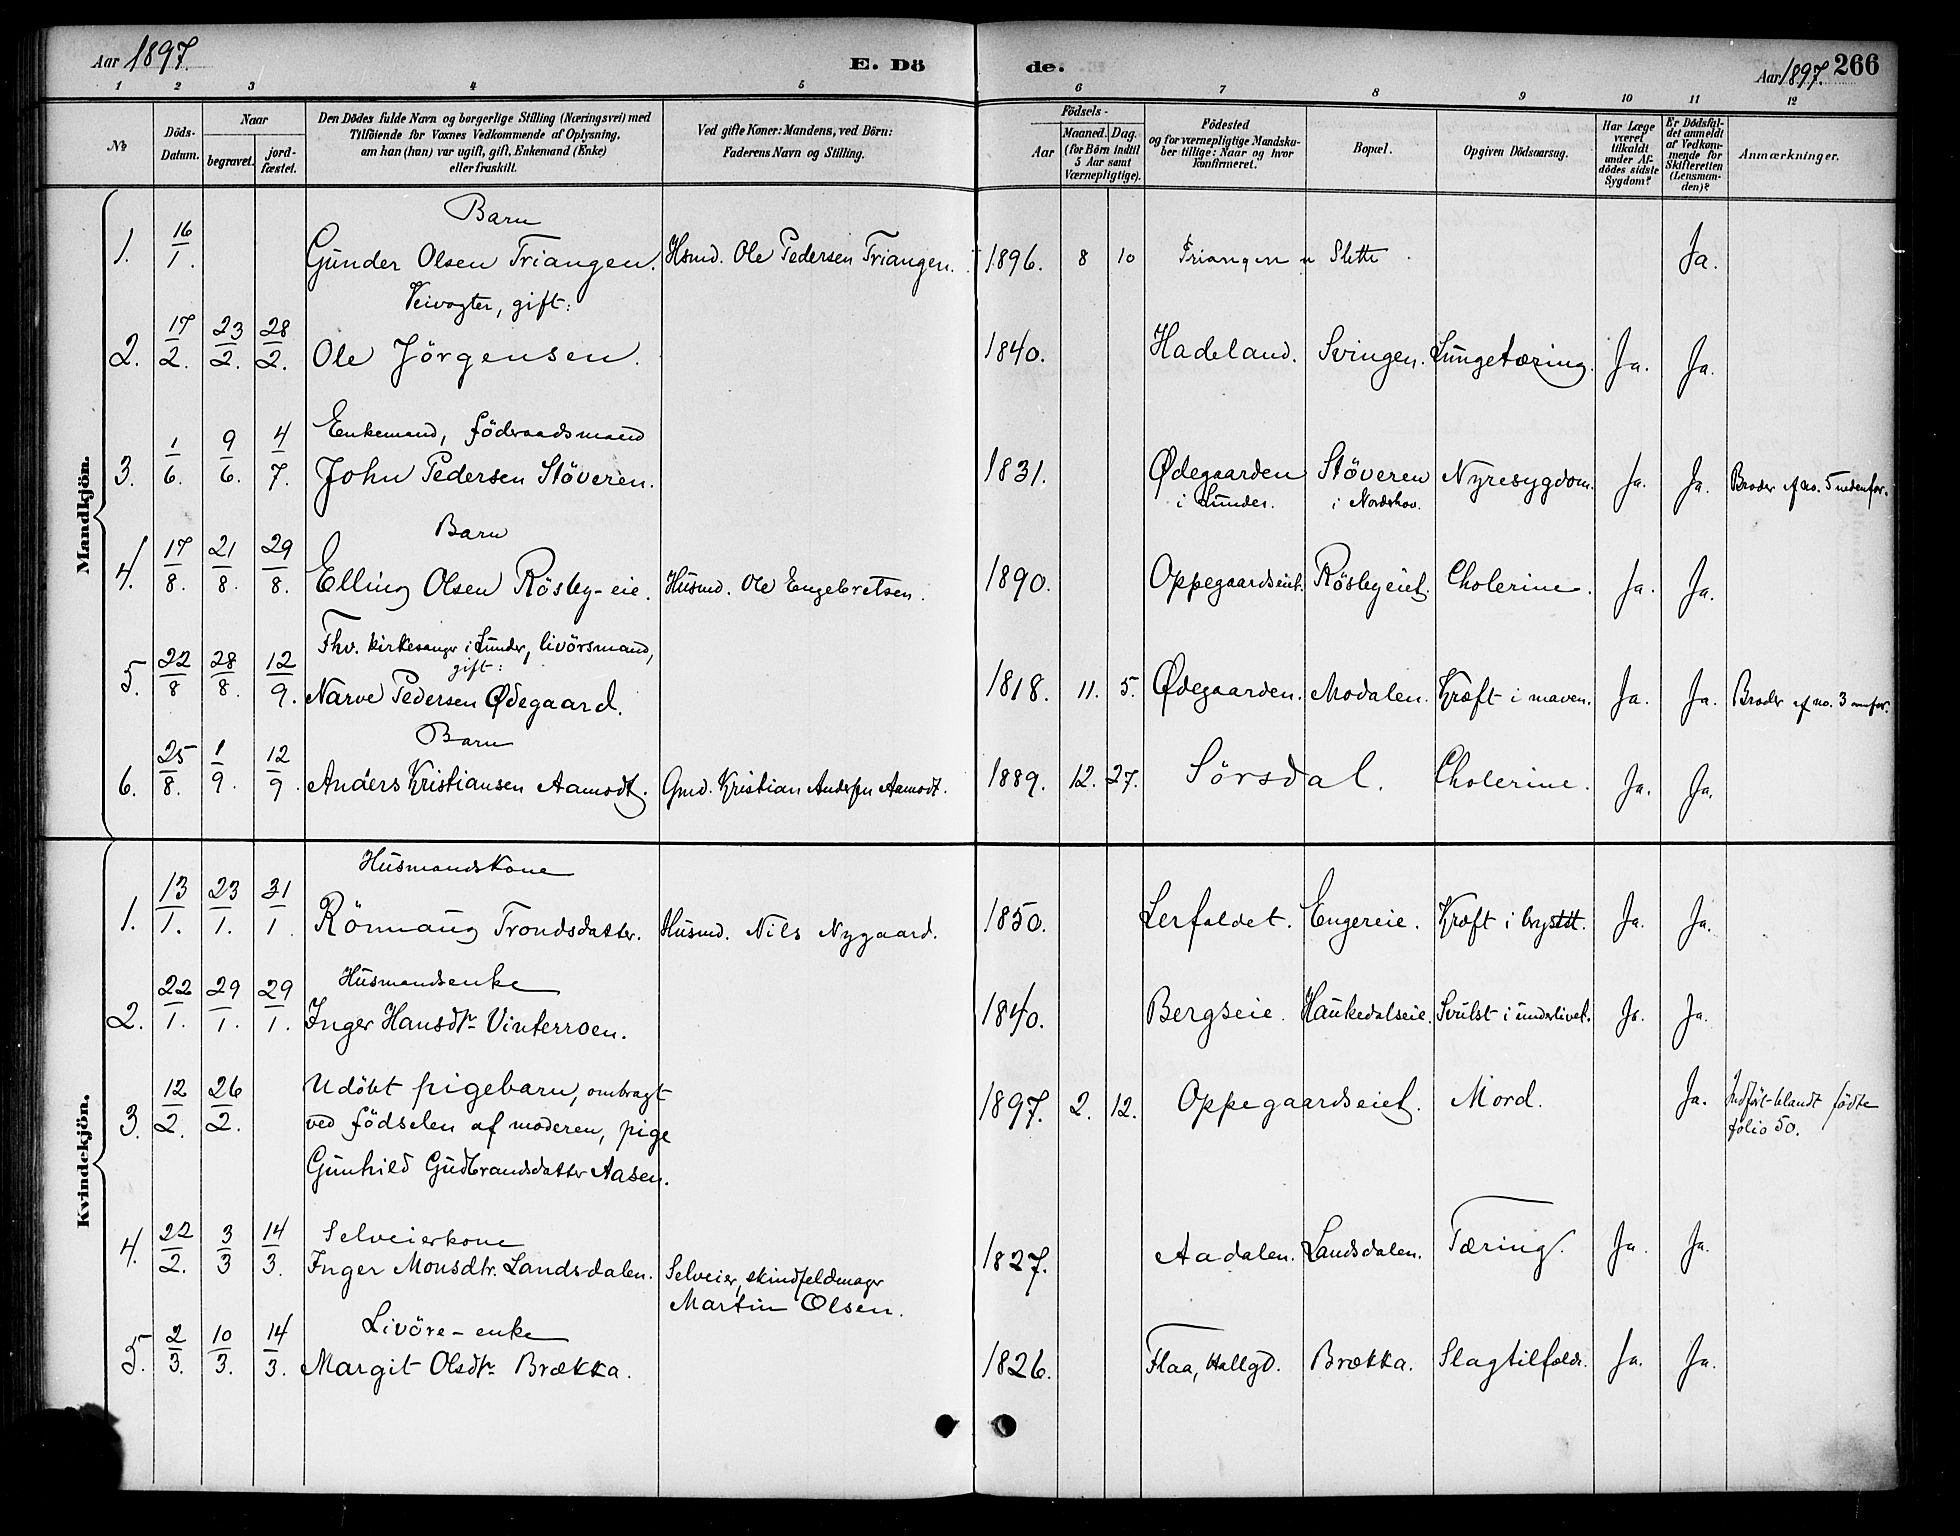 Aar 1897.
E. Dö
de.
Aar 1897. 266
1 2 3 4 5 6 7 8 9 10 11 12
No
Döds-
Datum.
Naar
begravet.
jord-
fæstet.
Den Dödes fulde Navn og borgerlige Stilling (Næringsvei) med
Tilföiende for Voxnes Vedkommende af Oplysning,
om han (hun) var ugift, gift, Enkemand (Enke)
eller fraskilt.
Ved gifte Koner: Mandens, ved Börn:
Faderens Navn og Stilling.
Födsels-
Aar
Maaned. Dag.
(for Börn indtil
5 Aar samt
Værnepligtige).
Födested
og for værnepligtige Mandska-
ber tillige: Naar og hvor
konfirmeret.
Bopæl.
Opgiven Dödsaarsag.
Har Læge
været
tilkaldt
under Af-
dödes sidste
Sygdom?
Er Dödsfal-
det anmeldt
af Vedkom-
mende for
Skifteretten
(Lensman-
den)?
Anmærkninger.
Mandkjön.
Barn
1. 16/1. Gunder Olsen Triangen. Hsmd. Ole Pedersen Triangen. 1896. 8 10 Triangen u Slette. Ja.
Veivogter, gift:
2. 17/2. 23/2. 28/2. Ole Jörgensen. 1840. Hadeland. Svingen. Lungetæring. Ja. Ja.
Enkemand, föderaadsmand
3. 1/6. 9/6. 4/7. John Pedersen Stöveren. 1831. Ødegaarden Stöveren Nyresygdom. Ja. Ja. Broder af no. 5 nedenfor.
i Lunder. i Nordskov.
Barn
4. 17/8. 21/8. 29/8. Elling Olsen Rösby-eie. Husmd. Ole Engebretsen. 1890. Oppegaardseiet. Rösbyeiet. Cholerine. Ja. Ja.
Fhv. kirkesanger i Lunder, livörsmand,
gift:
5. 22/8 28/8. 12/9. Narve Pedersen Ødegaard. 1818. 11. 5. Ødegaarden. Modalen. Kræft i maven. Ja. Ja. Broder af no. 3 ovenfor.
Barn
6. 25/8. 1/9. 12/9. Anders Kristiansen Aamodt. Gmd. Kristian Andersen Aamodt. 1889. 12. 27. Sörsdal. Cholerine. Ja. Ja.
Kvindekjön.
Husmandskone
1. 13/1. 23/1. 31/1 Rönnaug Trondsdatter. Husmd. Nils Nygaard. 1850. Lerfaldet. Engereie. Kræft i brystet. Ja. Ja.
Husmandsenke
2. 22/1. 29/1. 29/1. Inger Hansdtr Vinterroen. 1840. Bergseie. Haukedalseie. Svulst i underlivet. Ja. Ja.
3. 12/2. 26/2. Udöbt pigebarn, ombragt 1897. 2. 12. Oppegaardseiet. Mord. Ja. Indfört blandt födte
ved födselen af moderen, pige folio 50.
Gunhild Gudbrandsdatter Aasen.
Selveierkone
4. 22/2. 3/3 14/3. Inger Monsdtr. Landsdalen. Selveier, skindfeldmager 1827. Aadalen. Landsdalen. Tæring. Ja. Ja.
Martin Olsen.
Livöre-enke
5. 2/3. 10/3. 14/3. Margit Olsdtr Brækka. 1826. Flaa, Hallgd. Brækka. Slagtilfælde. Ja. Ja.